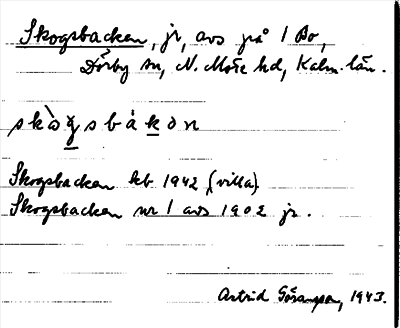 Skogsbacken, jr, avs på 1 Bo,
Dörby sn, N. Möre hd, Kalm. län.
skòɡsbákən
Skogsbacken kb 1942 (villa).
Skogsbacken nr 1 avs 1902 jr.
Astrid Göransson, 1943.